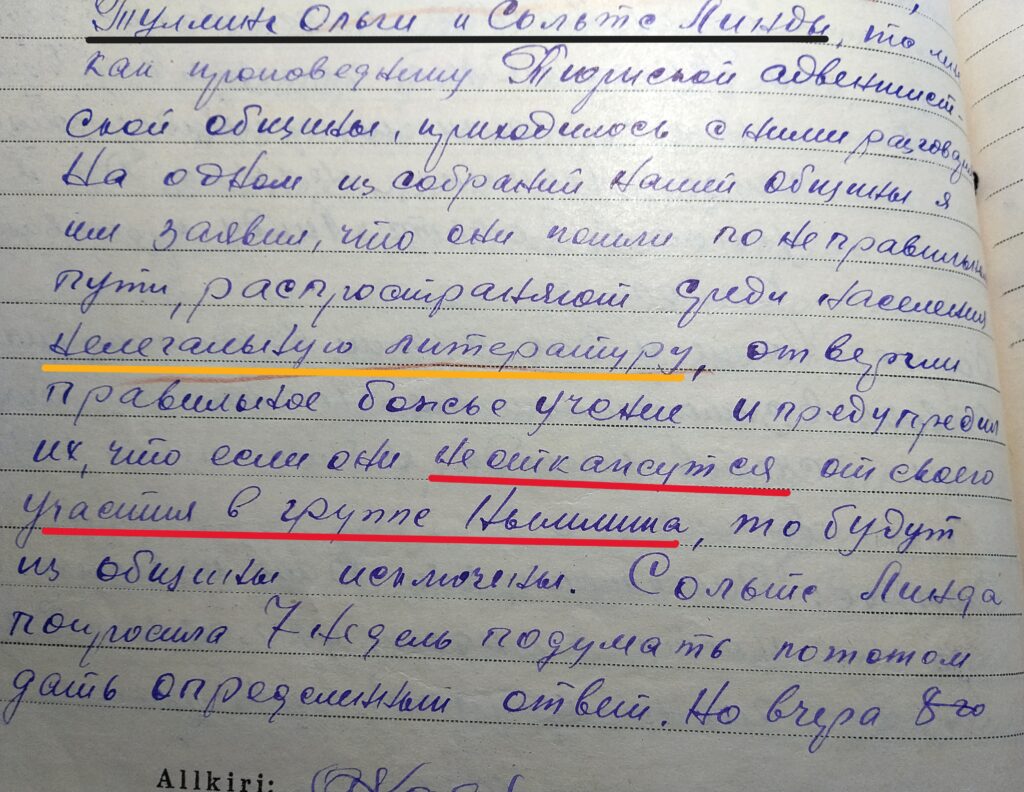 Туллине Ольги и Сольтс Линды, то мне
как проповеднику Тюриской адвентист-
ской общины, приходилось с ними разговари
На одном из собраний нашей общины я
им заявил, что они пошли по неправильн
пути, распространяют среди населения
нелегальную литературу, отвергли
правильное божье учение и предупредил
их, что если они не откажутся от своего
участия в группе Нымлина, то будут
из общины исключены. Сольтс Линда
попросила 7 недель подумать пототом
дать определенный ответ. Но вчера 8-го
Allkiri: